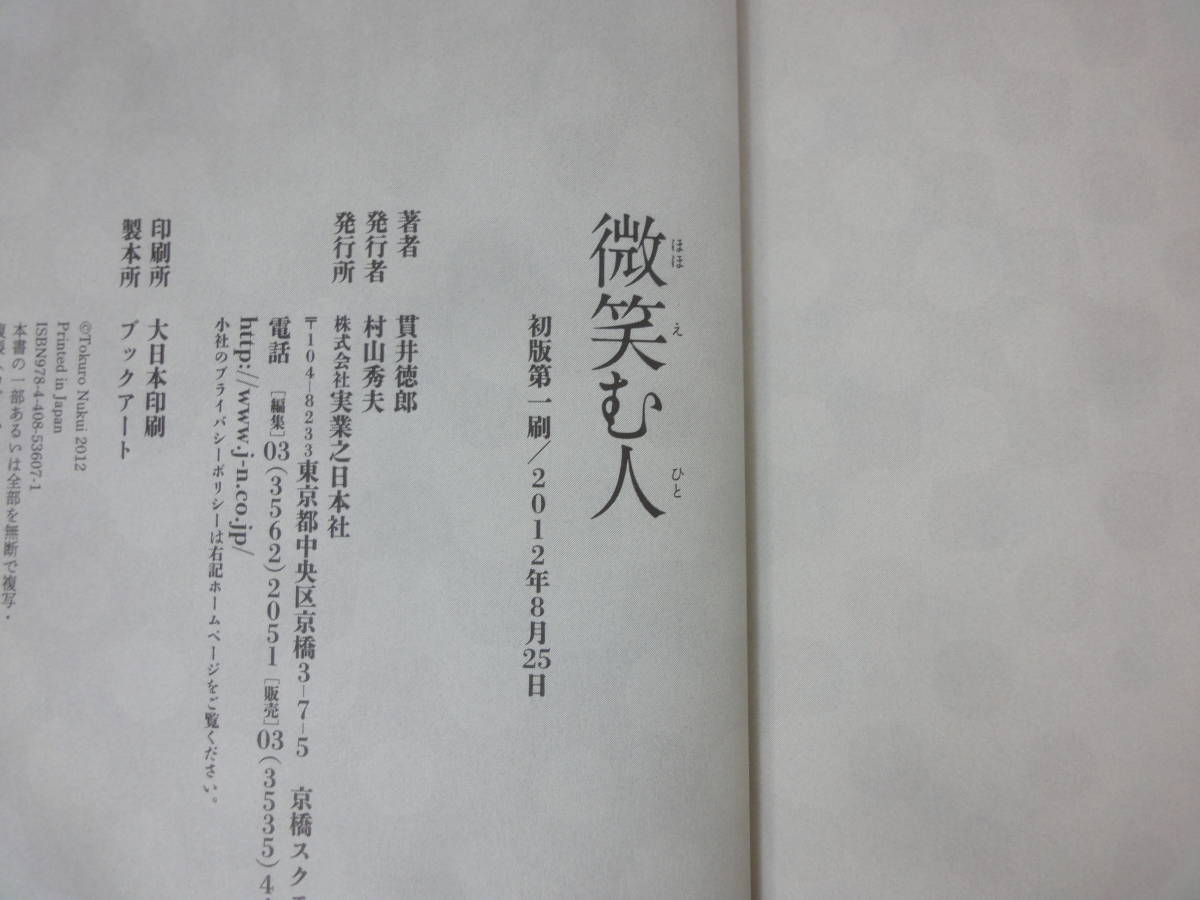 微笑む人
ほほ え ひと
初版第一刷/2012年8月25日
著者 貫井徳郎
発行者 村山秀夫
発行所 株式会社実業之日本社
〒104-8233東京都中央区京橋3-7-5 京橋スク
電話 [編集]03(3562)2051[販売]03(3535)4
http://www.j-n.co.jp/
小社のプライバシーポリシーは右記ホームページをご覧ください。
印刷所 大日本印刷
製本所 ブックアート
©Tokuro Nukui 2012
Printed in Japan
ISBN978-4-408-53607-1
本書の一部あるいは全部を無断で複写・